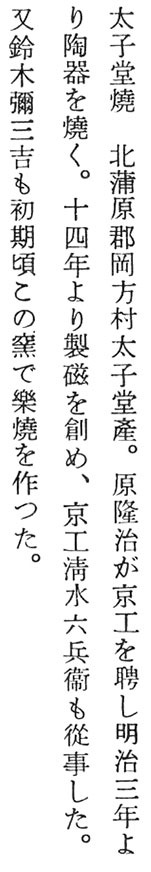 太子堂燒　北蒲原郡岡方村太子堂產。原隆治が京工を聘し明治三年よ
り陶器を燒く。十四年より製磁を創め、京工淸水六兵衞も從事した。
又鈴木彌三吉も初期頃この窯で樂燒を作つた。